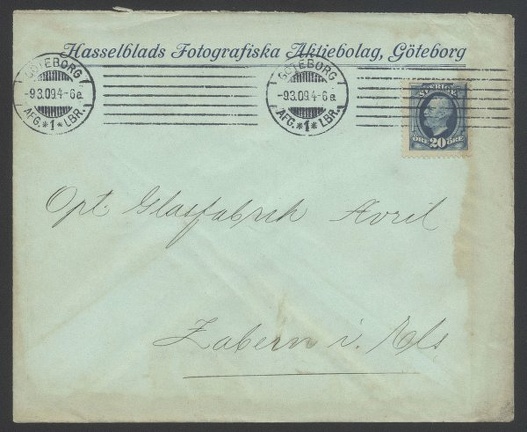 Hasselblads Fotografiska Aktiebolag, Göteborg
GÖTEBORG
-9.3.09.4-6a.
AFG. *1* LBR.
GÖTEBORG
-9.3.09.4-6a.
AFG. *1* LBR.
SVERIGE
ÖRE 20 ÖRE
Opt. Glasfabrik Avril
Zabern i. Els